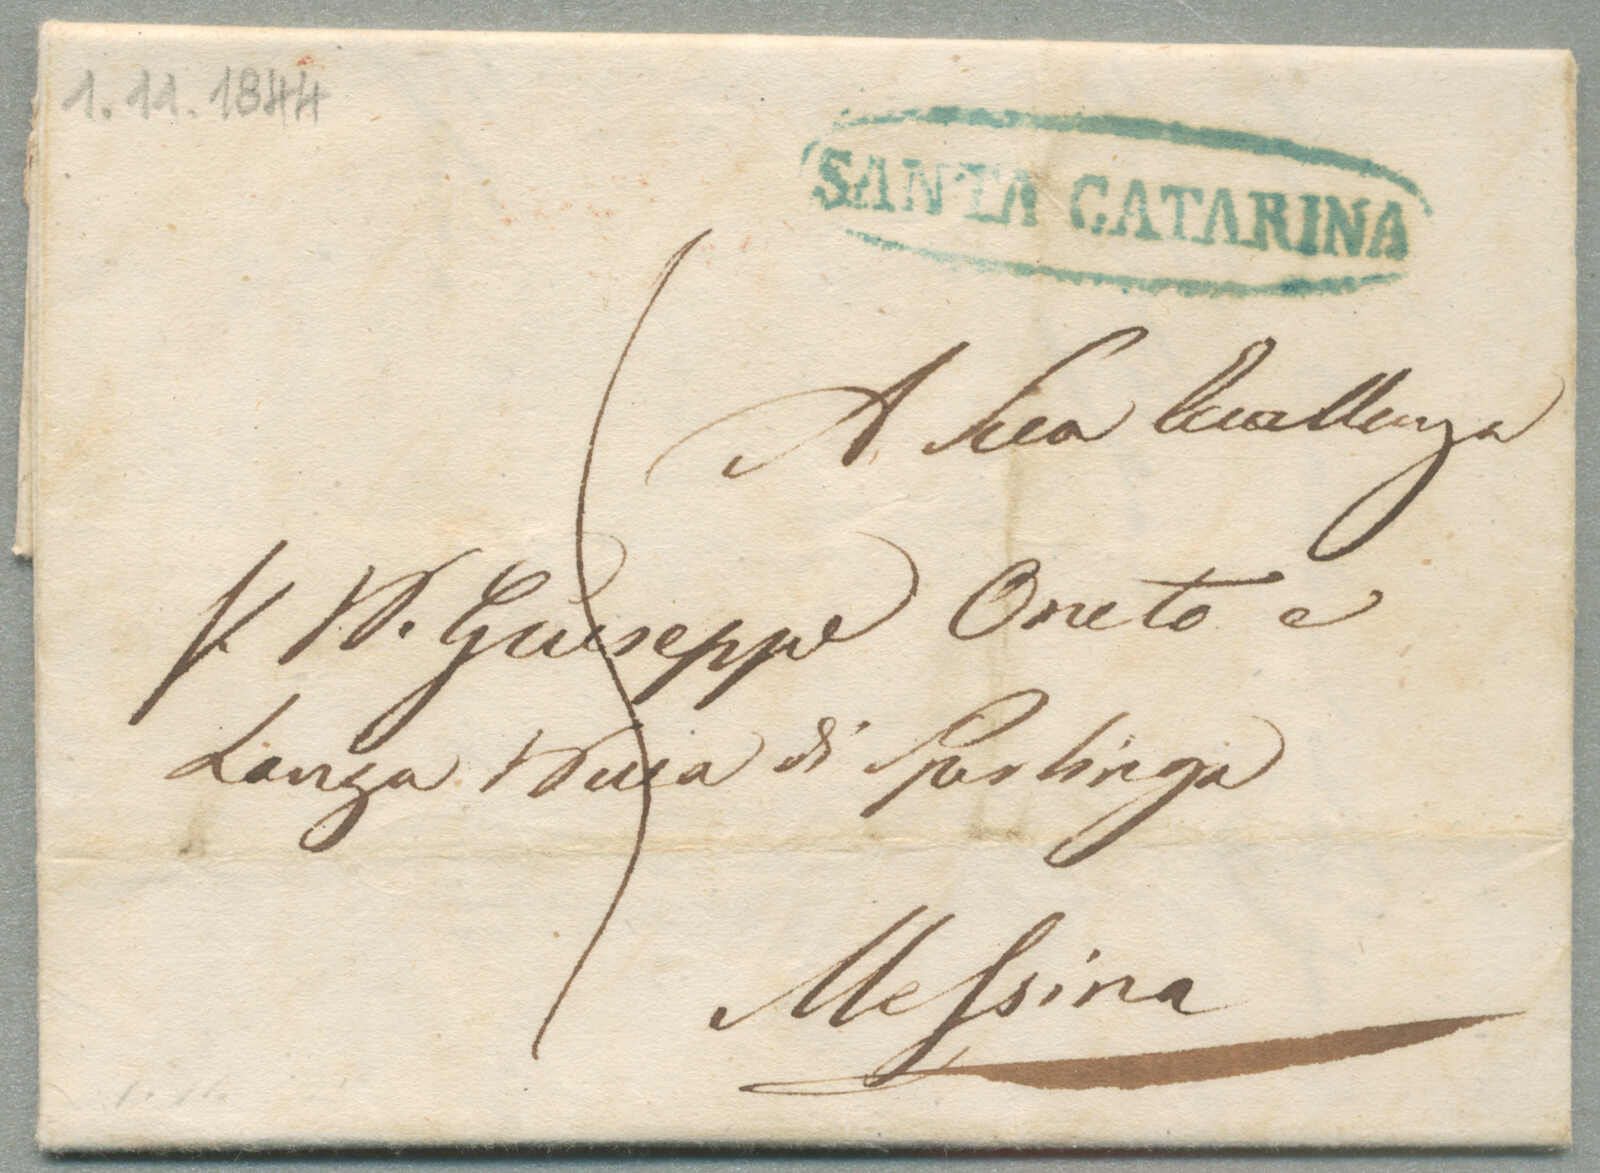 1.11.1844
SANTA CATARINA
A Sua Eccellenza
D. Giuseppe Oneto e
Lanza Duca di Sperlinga
Messina